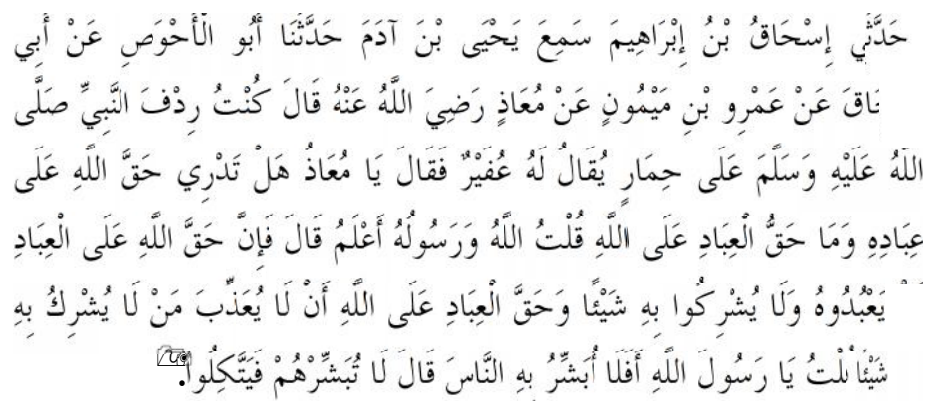 حَدَّثَنِي إِسْحَاقُ بْنُ إِبْرَاهِيمَ سَمِعَ يَحْيَى بْنَ آدَمَ حَدَّثَنَا أَبُو الْأَحْوَصِ عَنْ أَبِي
حَاقَ عَنْ عَمْرِو بْنِ مَيْمُونٍ عَنْ مُعَاذٍ رَضِيَ اللَّهُ عَنْهُ قَالَ كُنْتُ رِدْفَ النَّبِيِّ صَلَّى
اللَّهُ عَلَيْهِ وَسَلَّمَ عَلَى حِمَارٍ يُقَالُ لَهُ عُفَيْرٌ فَقَالَ يَا مُعَاذُ هَلْ تَدْرِي حَقَّ اللَّهِ عَلَى
عِبَادِهِ وَمَا حَقُّ الْعِبَادِ عَلَى اللَّهِ قُلْتُ اللَّهُ وَرَسُولُهُ أَعْلَمُ قَالَ فَإِنَّ حَقَّ اللَّهِ عَلَى الْعِبَادِ
يَعْبُدُوهُ وَلَا يُشْرِكُوا بِهِ شَيْئًا وَحَقَّ الْعِبَادِ عَلَى اللَّهِ أَنْ لَا يُعَذِّبَ مَنْ لَا يُشْرِكُ بِهِ
شَيْئًا لْتُ يَا رَسُولَ اللَّهِ أَفَلَا أُبَشِّرُ بِهِ النَّاسَ قَالَ لَا تُبَشِّرْهُمْ فَيَتَّكِلُوا.